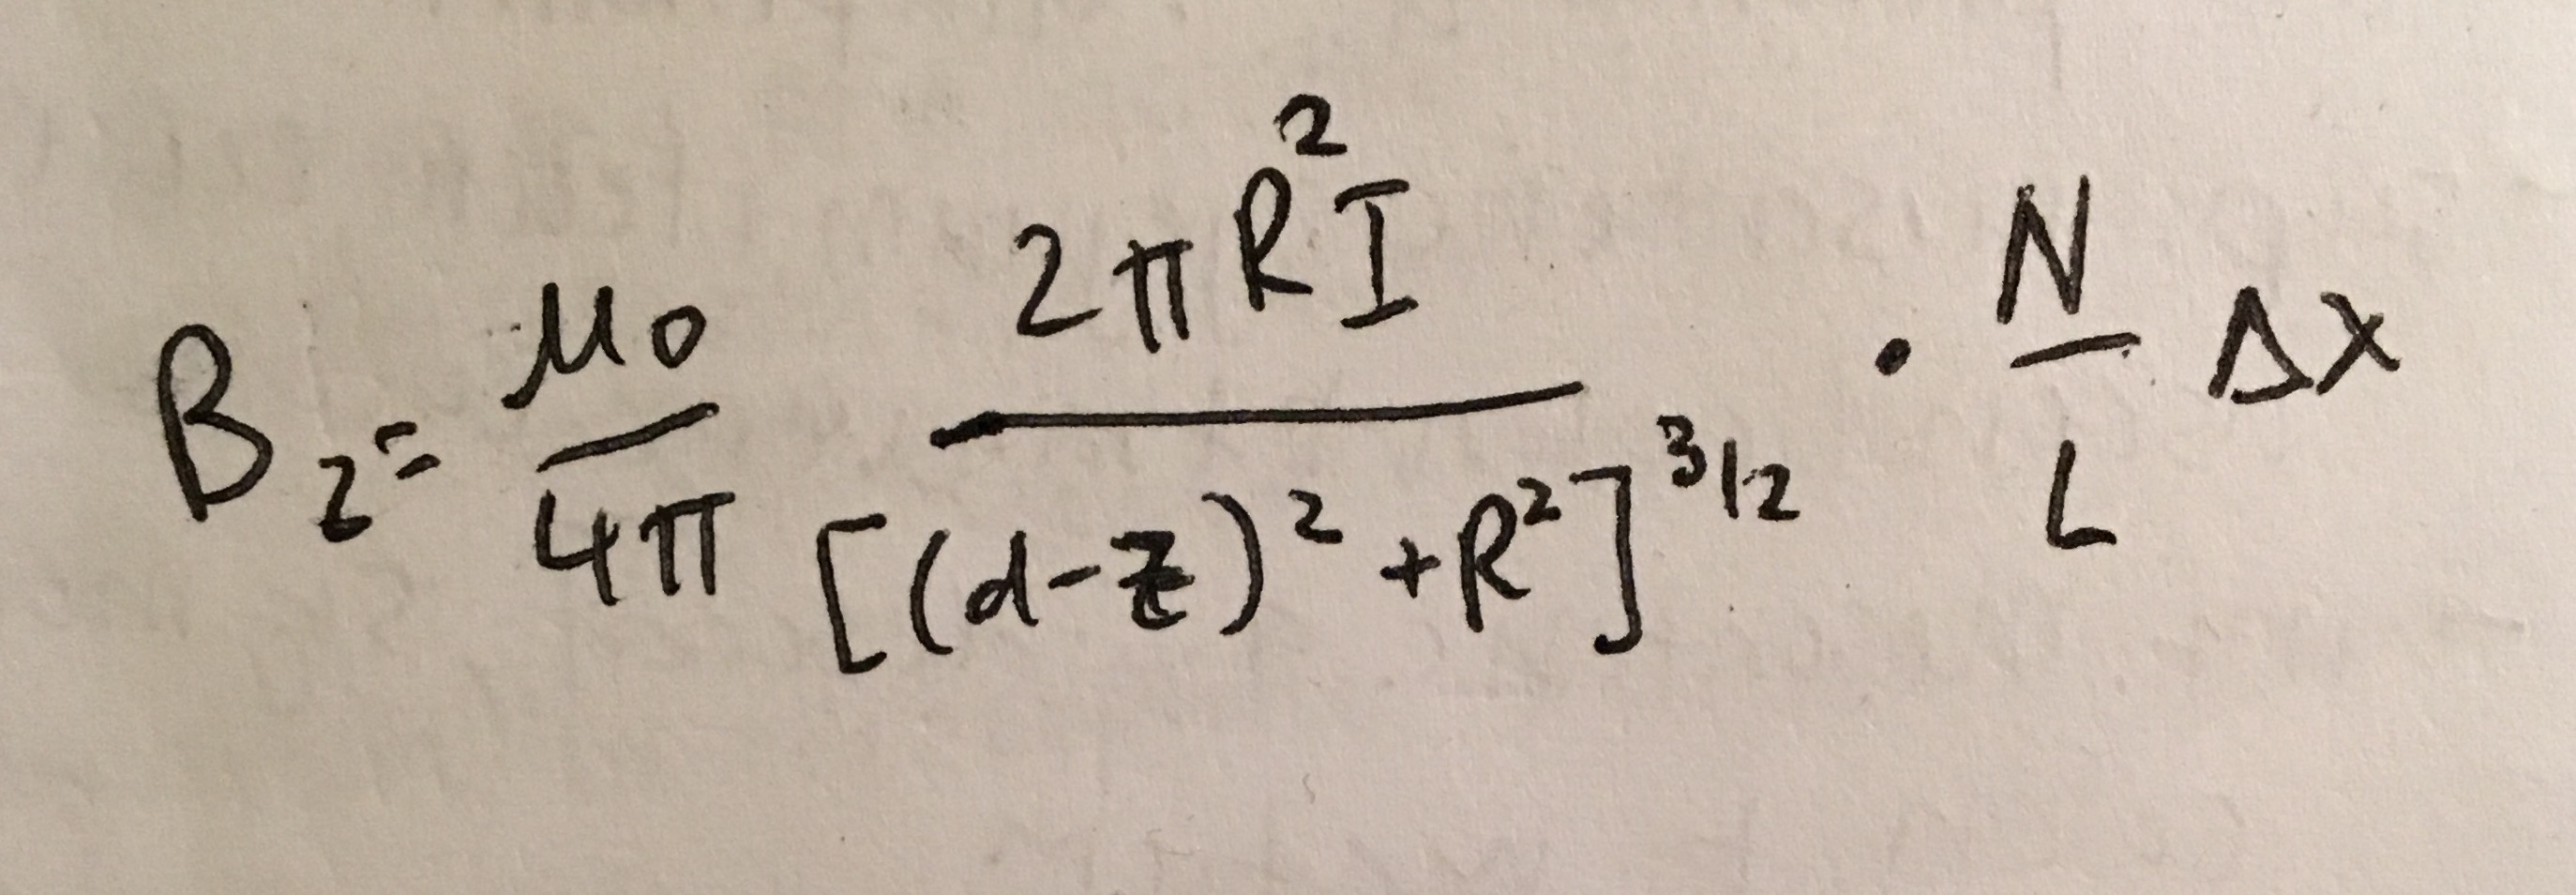 B_z = μ0/4π 2πR²I/[(d-z)²+R²]^3/2 · N/L Δx